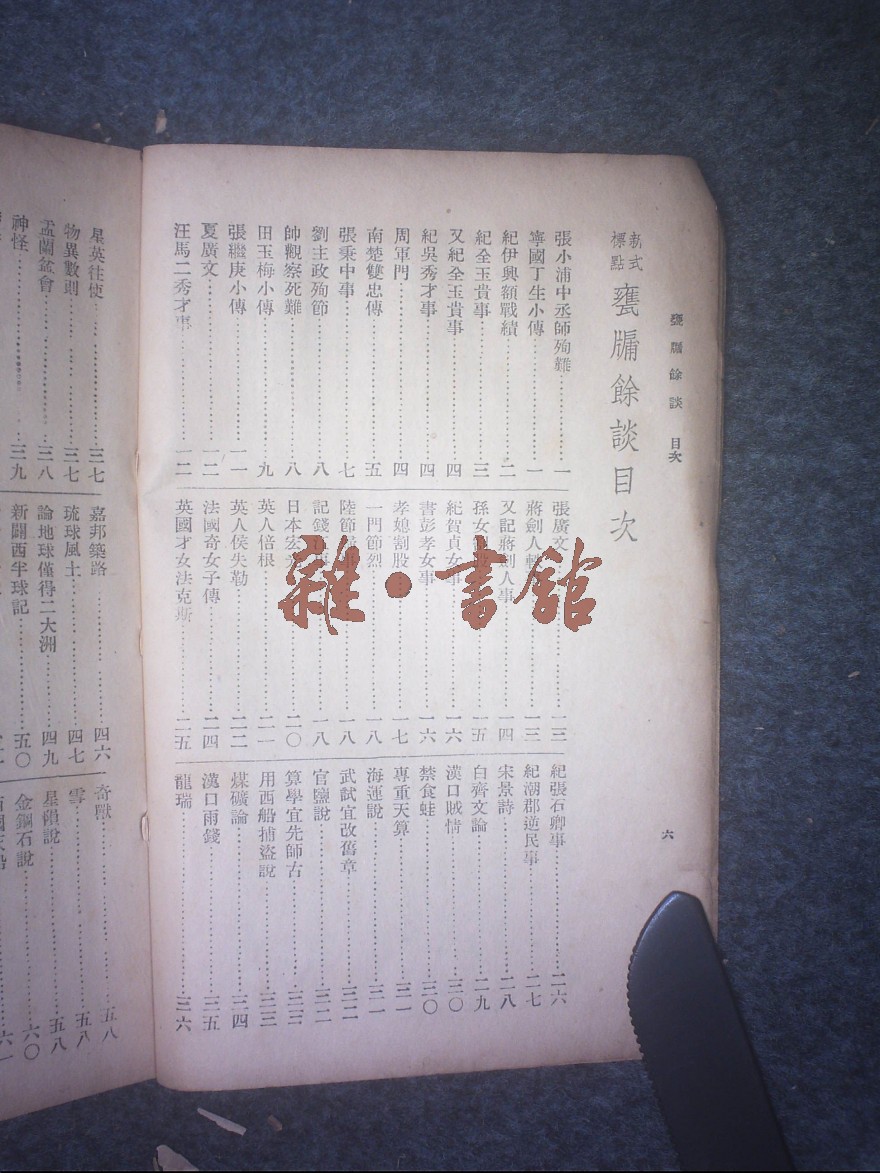 甕牖餘談 目次
六
新式標點 甕牖餘談目次
張小浦中丞師殉難 一
寧國丁生小傳 一
紀伊興額戰績 二
紀全玉貴事 三
又紀全玉貴事 四
紀吳秀才事 四
周軍門 四
南楚雙忠傳 五
張秉中事 七
劉主政殉節 八
帥觀察死難 八
田玉梅小傳 九
張繼庚小傳 一一
夏廣文 一二
汪馬二秀才事 一二
張廣文 一三
蔣劍人 一三
又記蔣劍人事 一四
孫女 一五
紀賀貞女事 一六
書彭孝女事 一六
孝媳割股 一七
一門節烈 一八
陸節 一八
記錢 一八
日本宏 二〇
英人倍根 二一
英人侯失勒 二二
法國奇女子傳 二四
英國才女法克斯 二五
紀張石卿事 二六
紀潮郡逆民事 二七
宋景詩 二八
白齊文論 二九
漢口賊情 三〇
禁食蛙 三〇
專重天算 三一
海運說 三一
武試宜改舊章 三二
官鹽說 三二
算學宜先師古 三三
用西船捕盜說 三三
煤礦論 三四
漢口雨錢 三五
龍瑞 三六
星英往使 三七
物異數則 三七
盂蘭盆會 三八
神怪 三九
嘉邦築路 四六
琉球風土 四七
論地球僅得二大洲 四九
新闢西半球記 五〇
奇獸 五八
雪 五八
星隕說 五八
金鋼石說 六〇
雜·書館